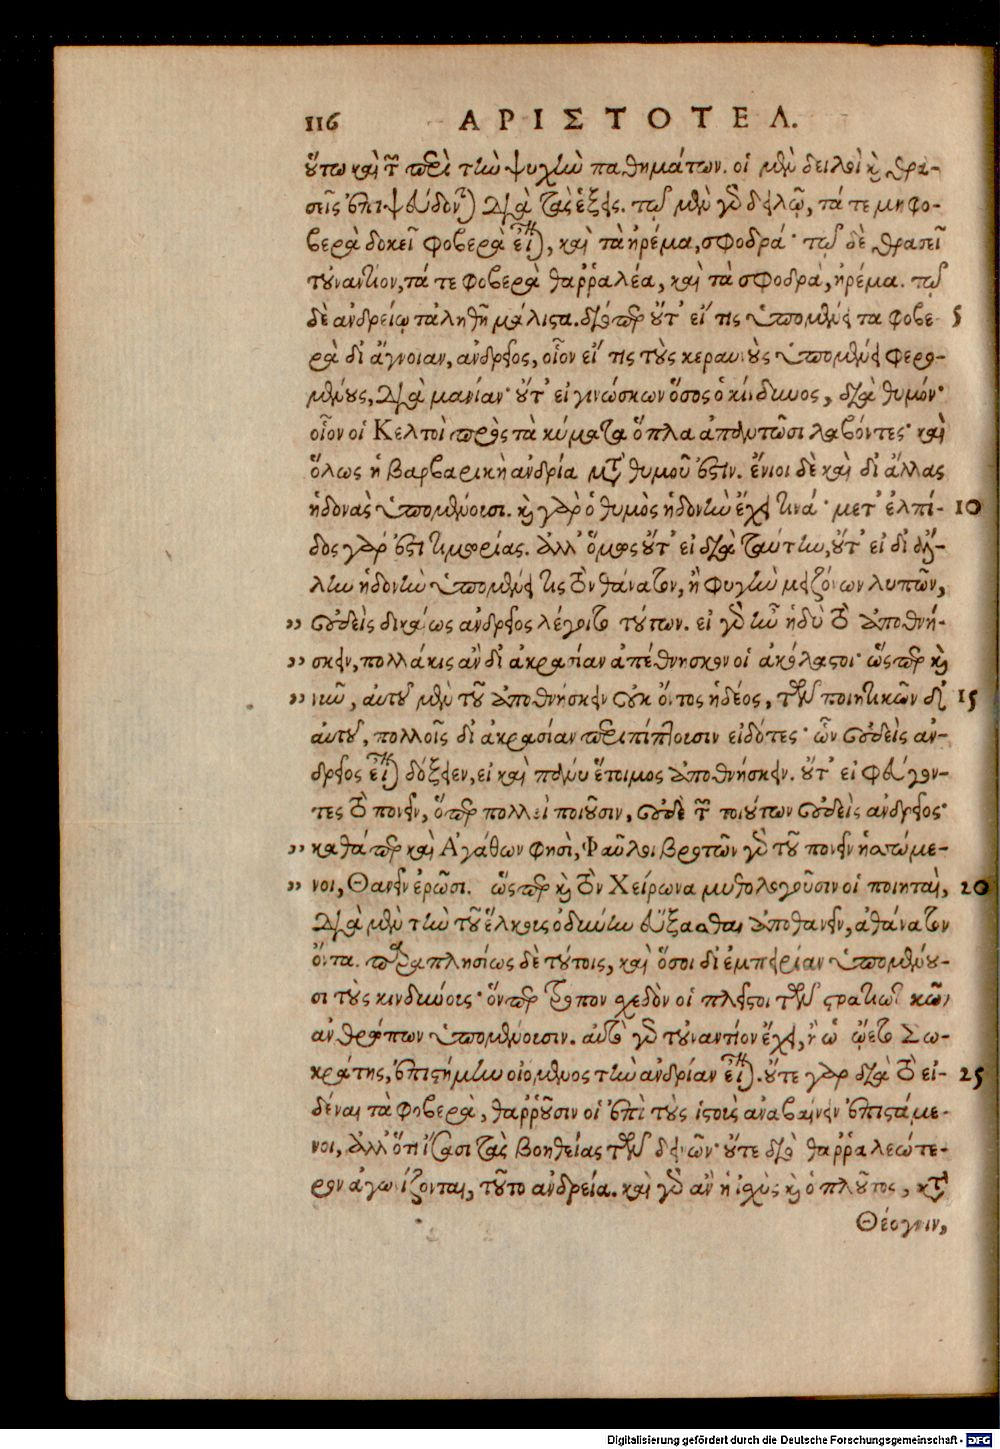 116 ΑΡΙΣΤΟΤΕΛ.
ὕτω καὶ τῶν περὶ τὴν ψυχὴν παθημάτων. οἱ μὲν δειλοὶ καὶ θρα-
σεῖς ἐπιψεύδονται διὰ τὰς ἕξεις. τῷ μὲν γὰρ δειλῷ, τά τε μὴ φο-
βερὰ δοκεῖ φοβερὰ εἶναι, καὶ τὰ ἠρέμα, σφοδρά· τῷ δὲ θρασεῖ
τὐναντίον, τά τε φοβερὰ θαῤῥαλέα, καὶ τὰ σφοδρὰ, ἠρέμα. τῷ
δὲ ἀνδρείῳ τἀληθῆ μάλιστα. διόπερ οὔτ' εἴ τις ὑπομένει τὰ φοβε- 5
ρὰ δι' ἄγνοιαν, ἀνδρεῖος, οἷον εἴ τις τοὺς κεραυνοὺς ὑπομένει φερο-
μένους, διὰ μανίαν· οὔτ' εἰ γινώσκων ὅσος ὁ κίνδυνος, διὰ θυμόν·
οἷον οἱ Κελτοὶ πρὸς τὰ κύματα ὅπλα ἀπαντῶσι λαβόντες· καὶ
ὅλως ἡ βαρβαρικὴ ἀνδρία μετὰ θυμοῦ ἐστιν. ἔνιοι δὲ καὶ δι' ἄλλας
ἡδονὰς ὑπομένουσι. καὶ γὰρ ὁ θυμὸς ἡδονὴν ἔχει τινά· μετ' ἐλπί- 10
δος γάρ ἐστι τιμωρίας. ἀλλ' ὅμως οὔτ' εἰ διὰ ταύτην, οὔτ' εἰ δι' ἄλ-
λην ἡδονὴν ὑπομένει τις τὸν θάνατον, ἢ φυγὴν μειζόνων λυπῶν,
„ οὐδεὶς δικαίως ἀνδρεῖος λέγοιτο τούτων. εἰ γὰρ ἦν ἡδὺ τὸ ἀποθνή-
„ σκειν, πολλάκις ἂν δι' ἀκρασίαν ἀπέθνησκον οἱ ἀκόλαστοι· ὥσπερ καὶ
„ νῦν, αὐτοῦ μὲν τοῦ ἀποθνήσκειν οὐκ ὄντος ἡδέος, τῶν ποιητικῶν δ' 15
αὐτοῦ, πολλοῖς δι' ἀκρασίαν περιπίπτουσιν εἰδότες· ὧν οὐδεὶς ἀν-
δρεῖος εἶναι δόξειεν, εἰ καὶ πάνυ ἕτοιμος ἀποθνήσκειν. οὔτ' εἰ φεύγον-
τες τὸ πονεῖν, ὅπερ πολλοὶ ποιοῦσιν, οὐδὲ τῶν τοιούτων οὐδεὶς ἀνδρεῖος·
„ καθάπερ καὶ Ἀγάθων φησὶ, Φαῦλοι βροτῶν γὰρ τοῦ πονεῖν ἡσσώμε-
„ νοι, Θανεῖν ἐρῶσι. ὥσπερ καὶ τὸν Χείρωνα μυθολογοῦσιν οἱ ποιηταὶ, 20
διὰ μὲν τὴν τοῦ ἕλκους ὀδύνην εὔξασθαι ἀποθανεῖν, ἀθάνατον
ὄντα. παραπλησίως δὲ τούτοις, καὶ ὅσοι δι' ἐμπειρίαν ὑπομένου-
σι τοὺς κινδύνους· ὅνπερ τρόπον σχεδὸν οἱ πλεῖστοι τῶν στρατιωτικῶν
ἀνθρώπων ὑπομένουσιν. αὐτὸ γὰρ τοὐναντίον ἔχει, ἢ ὡς ᾤετο Σω-
κράτης, ἐπιστήμην οἰόμενος τὴν ἀνδρίαν εἶναι. οὔτε γὰρ διὰ τὸ εἰ- 25
δέναι τὰ φοβερὰ, θαῤῥοῦσιν οἱ ἐπὶ τοὺς ἱστοὺς ἀναβαίνειν ἐπιστάμε-
νοι, ἀλλ' ὅτι ἴσασι τὰς βοηθείας τῶν δεινῶν· οὔτε διὸ θαῤῥαλεώτε-
ρον ἀγωνίζονται, τοῦτο ἀνδρεία. καὶ γὰρ ἂν ἡ ἰσχὺς καὶ ὁ πλοῦτος, κατὰ
Θέογνιν,
Digitalisierung gefördert durch die Deutsche Forschungsgemeinschaft - DFG